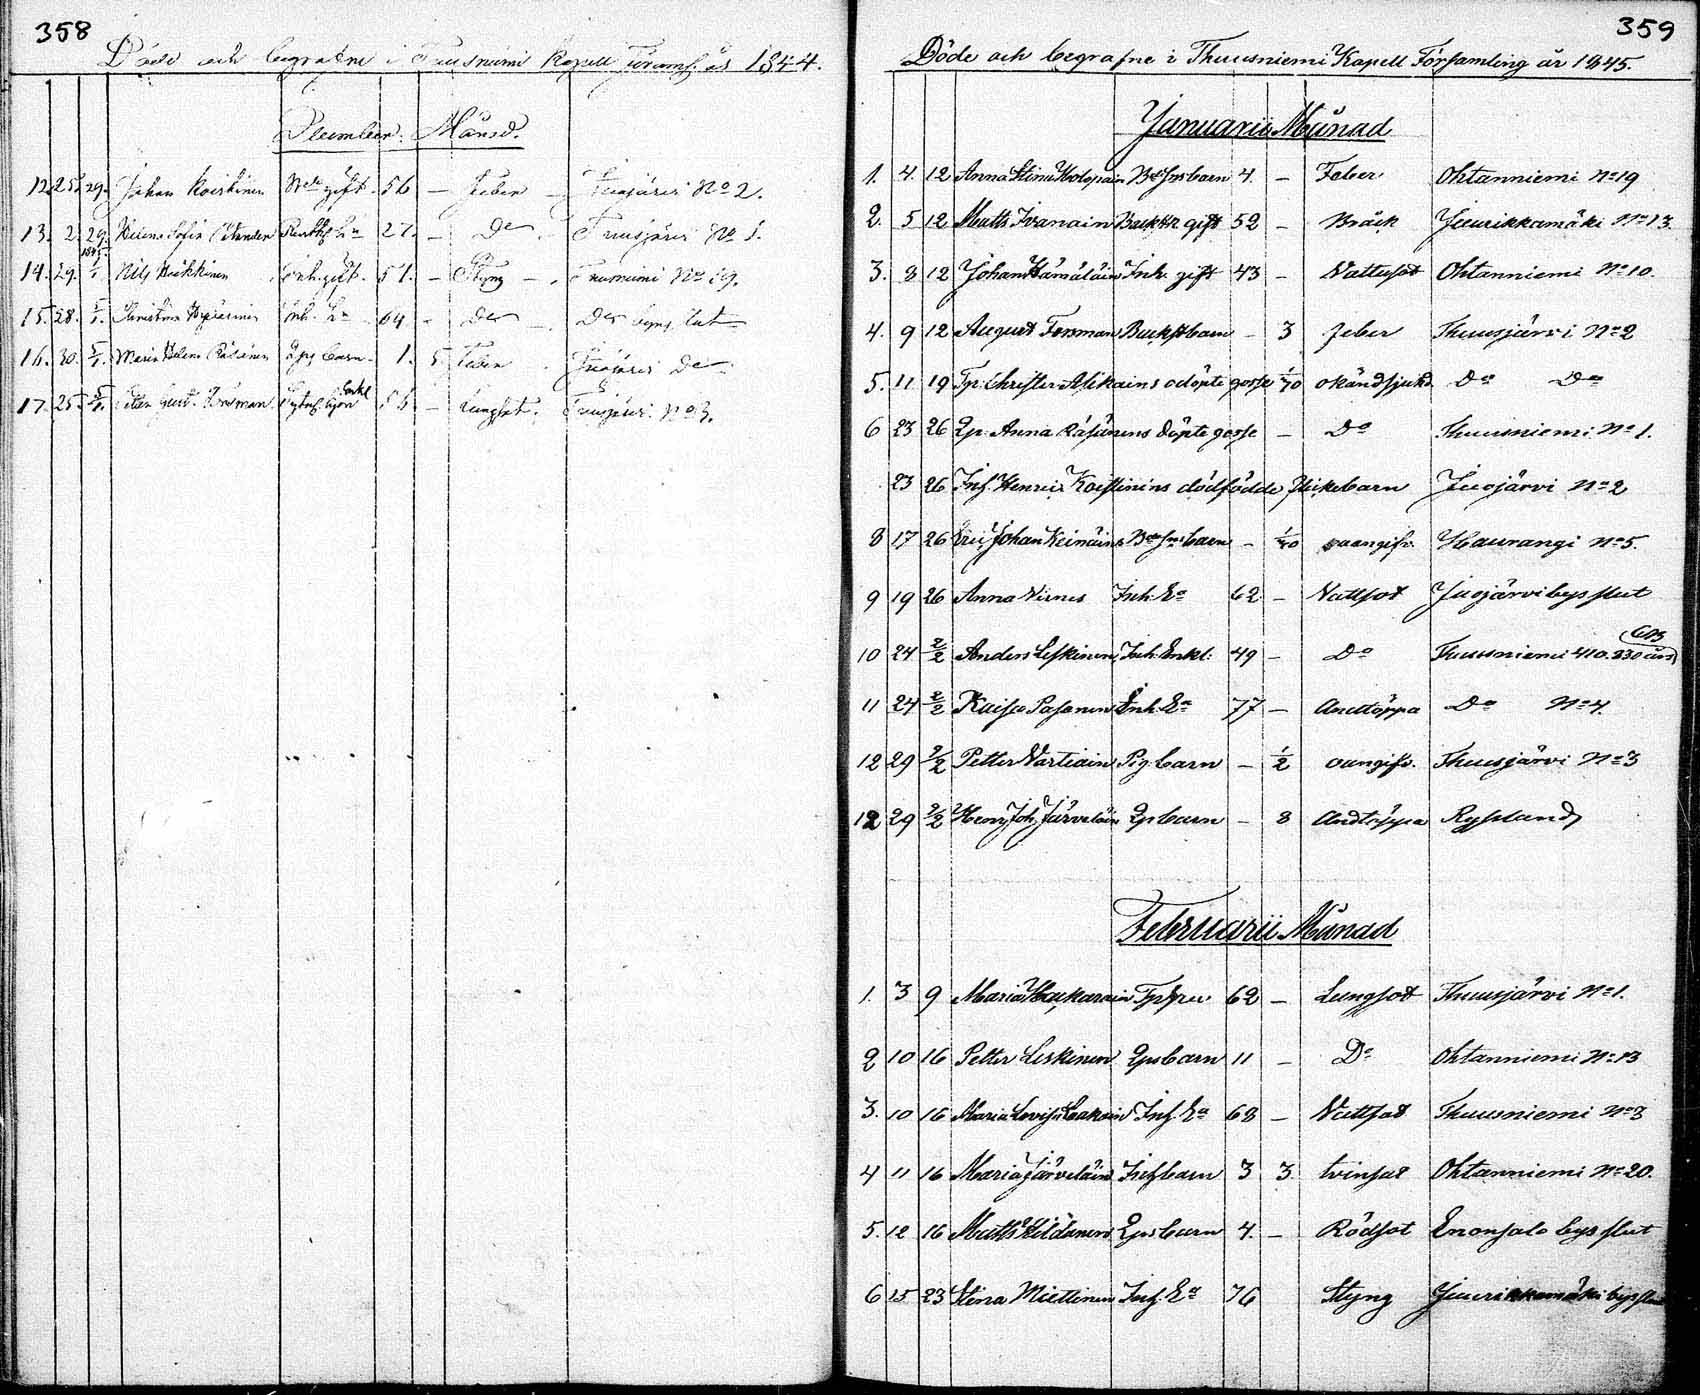 358
Döde och begrafne i Tuusniemi Kapell Församl. år 1844.
December Månad.
12. 25. 29. Johan Koistinen gift. 56 – Feber – Juojärvi No 2.
13. 2. 29. Helena Sofia En 27. – Do – Tuusjärvi No 1.
1845
14. 29. 1/1 Nils Heikkinen Inh. gift. 51. – Styng – Tuusniemi No 19.
15. 28. 5/1. Christina Inh. En 64 – Do – Do bys slut
16. 30. 5/1. Maria Helena Räsänen Lps barn. 1. 5. Feber Juojärvi Do
17. 25. 5/1. Petter Gust. Forsman Enkl 56 – Lungsot. Tuusjärvi No 3.
359
Döde och begrafne i Thuusniemi Kapell Församling år 1845.
Januarii Månad
1. 4. 12 Anna Stina Holopain barn 4. – Feber Ohtanniemi No 19
2. 5 12 Matts Ivanain gift 52 – Bråck Juurikkamäki No 13.
3. 8 12 Johan Hämäläin Inh. gift 43 – Vattusot Ohtanniemi No 10.
4. 9 12 August Forsman barn – 3 Feber Thuusjärvi No 2
5. 11 19 Tp. Christer Asikains odöpte gosse 1/70 okändsjukd. Do Do
6 23 26 Lp. Anna Räsänens döpte gosse – Do Thuusniemi No 1.
23 26 Inh. Henric Koistinins dödfödde flickebarn Juojärvi No 2
8 17 26 Eric Johan Keinäin barn – oangifv. Haurangi No 5.
9 19 26 Anna Virnes Inh. Ea 62 – Vattsot Juojärvi bys slut
10 24 2/2 Anders Leskinen Inh. Enkl. 49 – Do Thuusniemi
11 24 2/2 Kaisa Pasanen Inh. Ea 77 – Andtäppa Do No 4.
12 29 2/2 Petter Vartiain Pig. barn – 1/2 oangifv. Thuusjärvi No 3
12 29 2/2 Henr. Joh. Järveläin Lps barn – 8 Andtäppa Ryssland
Februarii Månad
1. 3 9 Maria 62 – Lungsot Thuusjärvi No 1.
2 10 16 Petter Leskinen Lps barn 11 – Do Ohtanniemi No 13
3. 10 16 Maria Lovisa Inh. Ea 68 – Vattsot Thuusniemi No 3
4 11 16 Maria Järveläin Inh. barn 3 3. tvinsot Ohtanniemi No 20.
5. 12 16 Matts Lps barn 4. – Rödsot Enonsalo bys slut
6 15 23 Stina Miettinen Inh. Ea 76 Styng Juurikkamäki bys slut